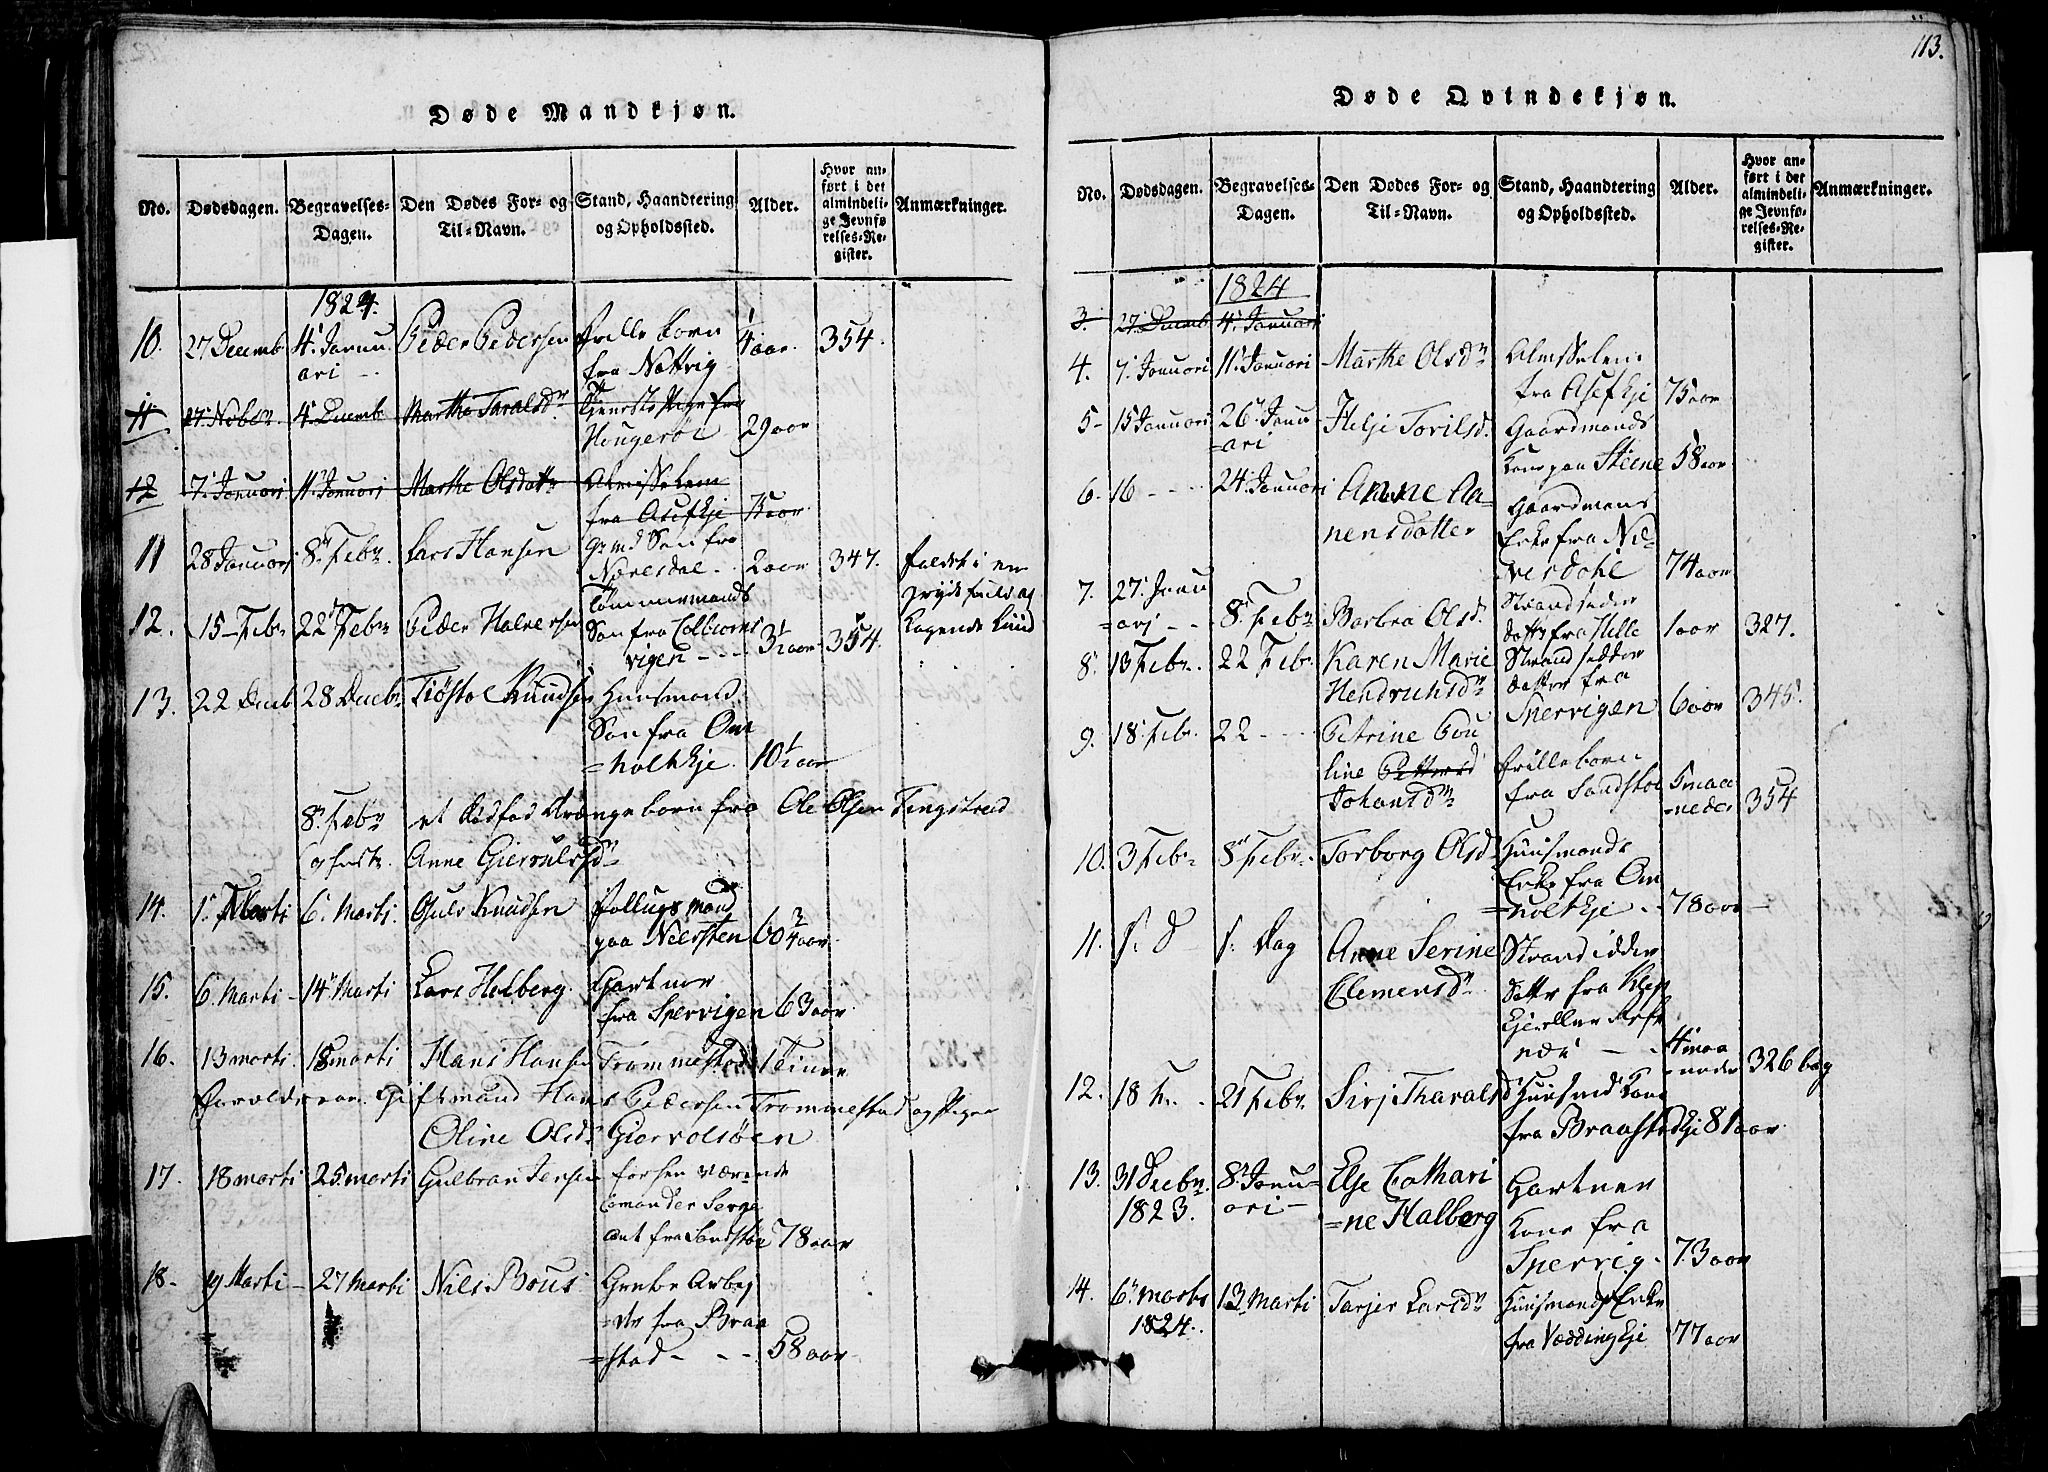 113.
Døde Mandkjøn.
No. Dødsdagen. Begravelses-Dagen. Den Dødes For- og Til-Navn. Stand, Haandtering og Opholdssted. Alder. Hvor anført i det almindelige Jevnførelses-Register. Anmærkninger.
1824.
10. 27 Decemb 4. Januari Peder Pedersen
fra Nattvig 4 aar. 354.
11 27. Nobr. 4. Decemb Marthe Taralsdr
Tjeneste Pige fra
Hougerøe 29 aar
12 7. Januari 11. Januari Marthe Olsdatr Almisselem
fra Asefkje 75 aar
11 28 Januari 8. Febr. Lars Hansen Søn fra
2 aar 347.
12. 15 Febr 22 Febr Peder Halvorsen Tømmermands
Søn fra Colbiørns
vigen 3½ aar 354.
13. 22 Decb 28 Decbr Tiøstol Knudsen Huusmands
Søn fra Om
=holtEje 10½ aar
8. Febr et dødfød Drængeborn fra Ole Olsen Tingstveid
og Anne Giervulsdr
14. 1. Marti 6. Marti. Gulv Knudsen
paa Neersten 60¾ aar
15. 6. Marti 14. Marti Lars Helberg. Gartner
fra Spervigen 63 aar
16. 13 marti. 18 marti Hans Hansen Trommestad 1 Time
Forældre: Giftmand Hans Pedersen Trommestad og Pigen
Oline Olsdr Giervolsøen
17. 18 marti 25. marti Gulbran Jensen forhen værende
Comander Serge
ant fra Sandstøe 78 aar
18. 19 Marti 27 Marti Nils Bous Grube Arbej
=der fra Braa
=stad 58 aar
Døde Qvindekjøn.
No. Dødsdagen. Begravelses-Dagen. Den Dødes For- og Til-Navn. Stand, Haandtering og Opholdssted. Alder. Hvor anført i det almindelige Jevnførelses-Register. Anmærkninger.
1824
3. 27. Decemb 4. Januari
4. 7. Januari 11. Januari Marthe Olsdr Almisselem
fra Asefkje 75 aar
5 15 Januari 26. Janu
=ari Helje Torilsd. Gaardmands
Kone paa Steene 58 aar
6. 16 24. Januari Anne Aa-
nensdatter Gaardmans
Enke fra Ne-
verdahl 74 aar
7. 27. Janu
=arj 8. Febr Barbra Olsd. Strandsidder
datter fra Helle 1 aar 327.
8. 13 Febr. 22 Febr. Karen Marie
Hendrichsdr Strandsidder
datter fra
Spervigen 6 aar 345.
9. 18. Febr. 22 Petrine Pou
line Petters d
Johansdr
fra Sandstøe 5 maa
=neder 354
10. 3 Febr 8 Febr. Torborg Olsd Huusmands
Enke fra Om
=holtEje 78 aar
11. s. D s. Dag Anne Serine
Clemensdr Strandsidder
datter fra Klep
Eje
4 maa
=neder 326 bag
12. 18 21 Febr. Sirj Tharalsd Huusmd Kone
fra BraastadEje 81 aar
13. 31 Decbr.
1823. 8. Janu-
ari Else Cathari
=ne Halberg Gartner
Kone fra
Spervig. 73 aar
14. 6. marts
1824. 13 Marti Tarjer Larsdr Huusmands Enke
fra VæddingEje 77 aar